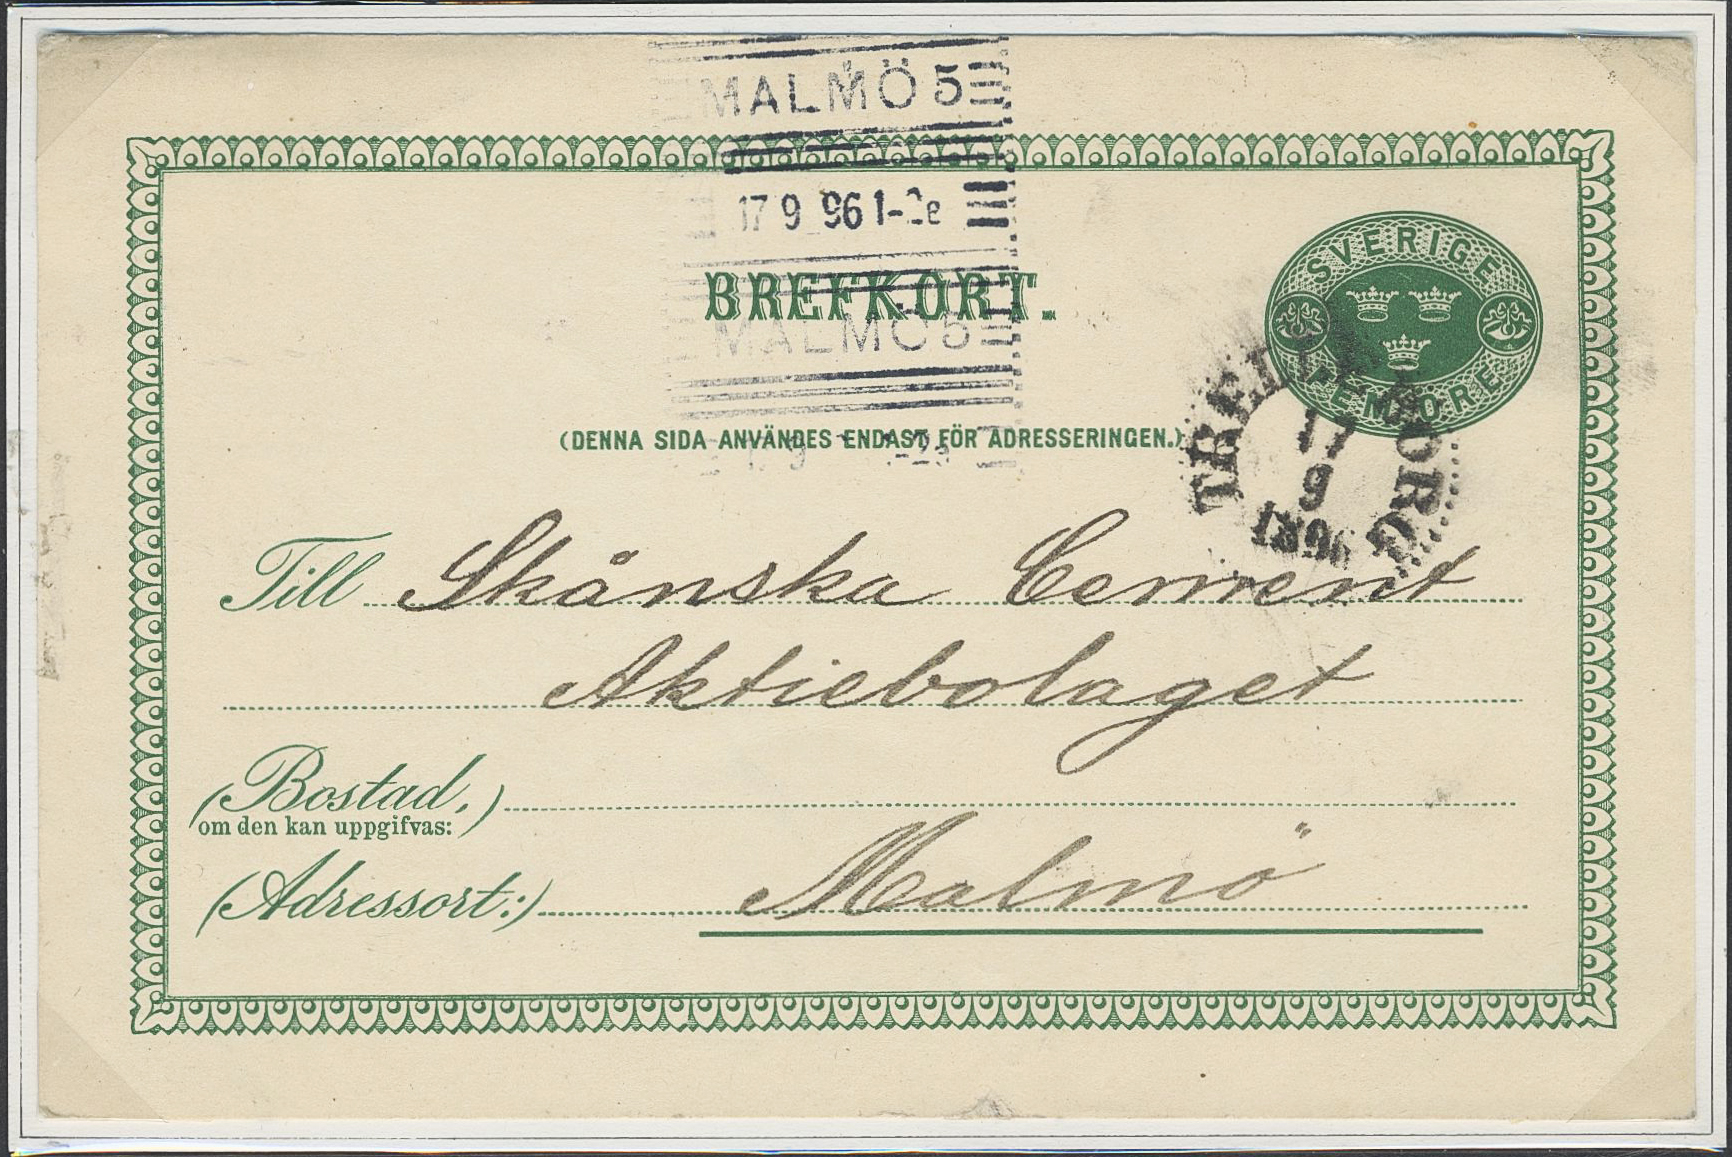 MALMÖ 5
17 9 96 1-2e
SVERIGE
FEM ÖRE
BREFKORT.
MALMÖ 5
TRELLEBORG
17
9
1896
(DENNA SIDA ANVÄNDES ENDAST FÖR ADRESSERINGEN.)
Till Skånska Cement
Aktiebolaget
(Bostad,)
om den kan uppgifvas:
(Adressort:) Malmö